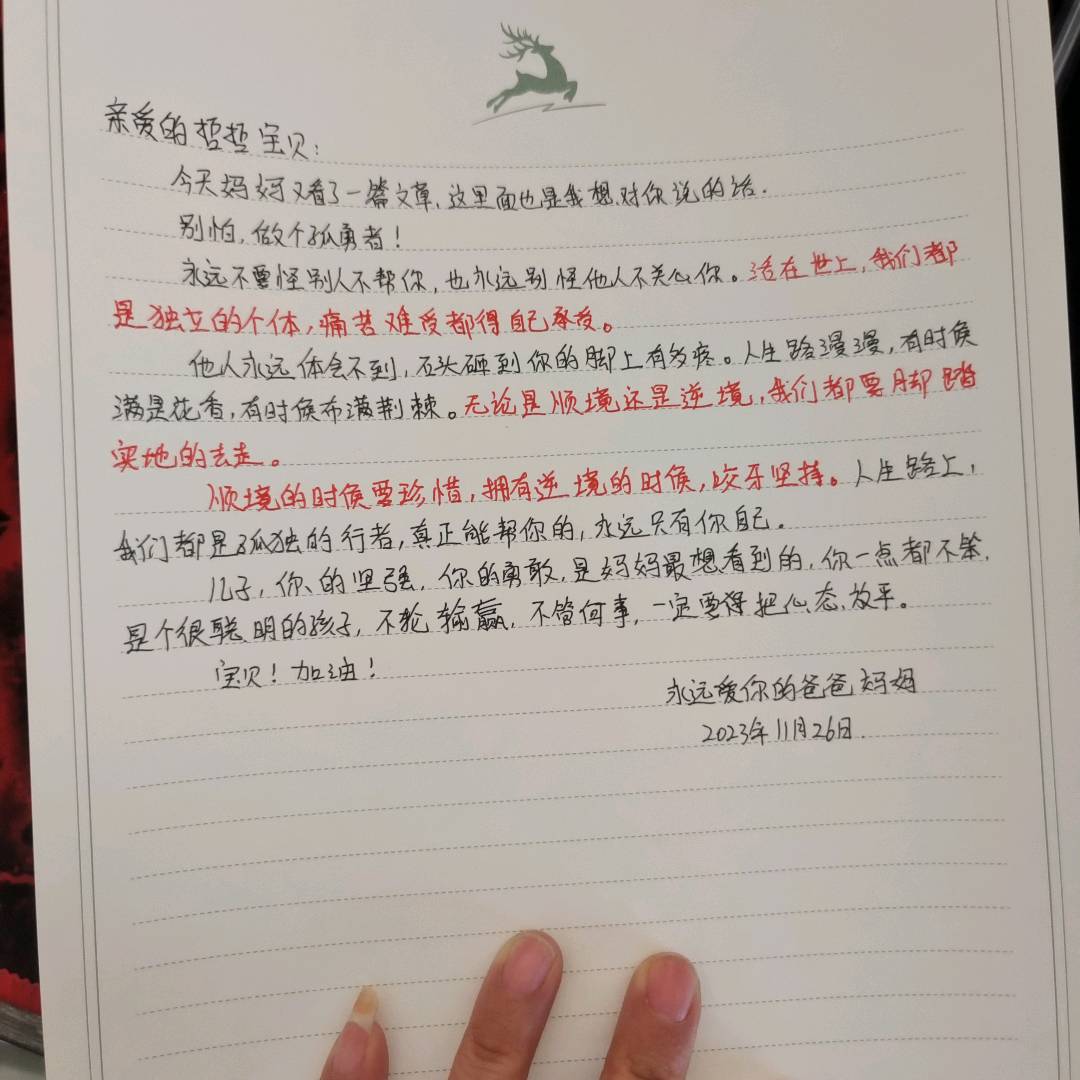 亲爱的哲哲宝贝:
今天妈妈又看了一篇文章,这里面也是我想对你说的话.
别怕,做个孤勇者!
永远不要怪别人不帮你,也永远别怪他人不关心你。活在世上,我们都
是独立的个体,痛苦难受都得自己承受。
他人永远体会不到,石头砸到你的脚上有多疼。人生路漫漫,有时候
满是花香,有时候布满荆棘。无论是顺境还是逆境,我们都要脚踏
实地的去走。
顺境的时候要珍惜,拥有逆境的时候,咬牙坚持。人生路上,
我们都是孤独的行者,真正能帮你的,永远只有你自己.
儿子,你的坚强,你的勇敢,是妈妈最想看到的,你一点都不笨.
是个很聪明的孩子,不轮输赢,不管何事,一定要得把心态放平。
宝贝!加油!
永远爱你的爸爸妈妈
2023年11月26日.